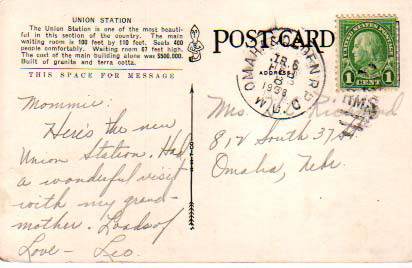 UNION STATION
The Union Station is one of the most beauti-
ful in this section of the country. The main
waiting room is 160 feet by 110 feet. Seats 400
people comfortably. Waiting room 67 feet high.
The cost of the main building alone was $500,000.
Built of granite and terra cotta.
THIS SPACE FOR MESSAGE
Mommie:
Here's the new
Union Station. Had
a wonderful visit
with my grand-
mother. Loads of
Love - Leo.
POST CARD
ADDRESS
OMAHA
R.P.O.
1938
W.D.
UNITED STATES POSTAGE
1 CENT 1
RMS
Mrs.
812 South 37
Omaha, Nebr.